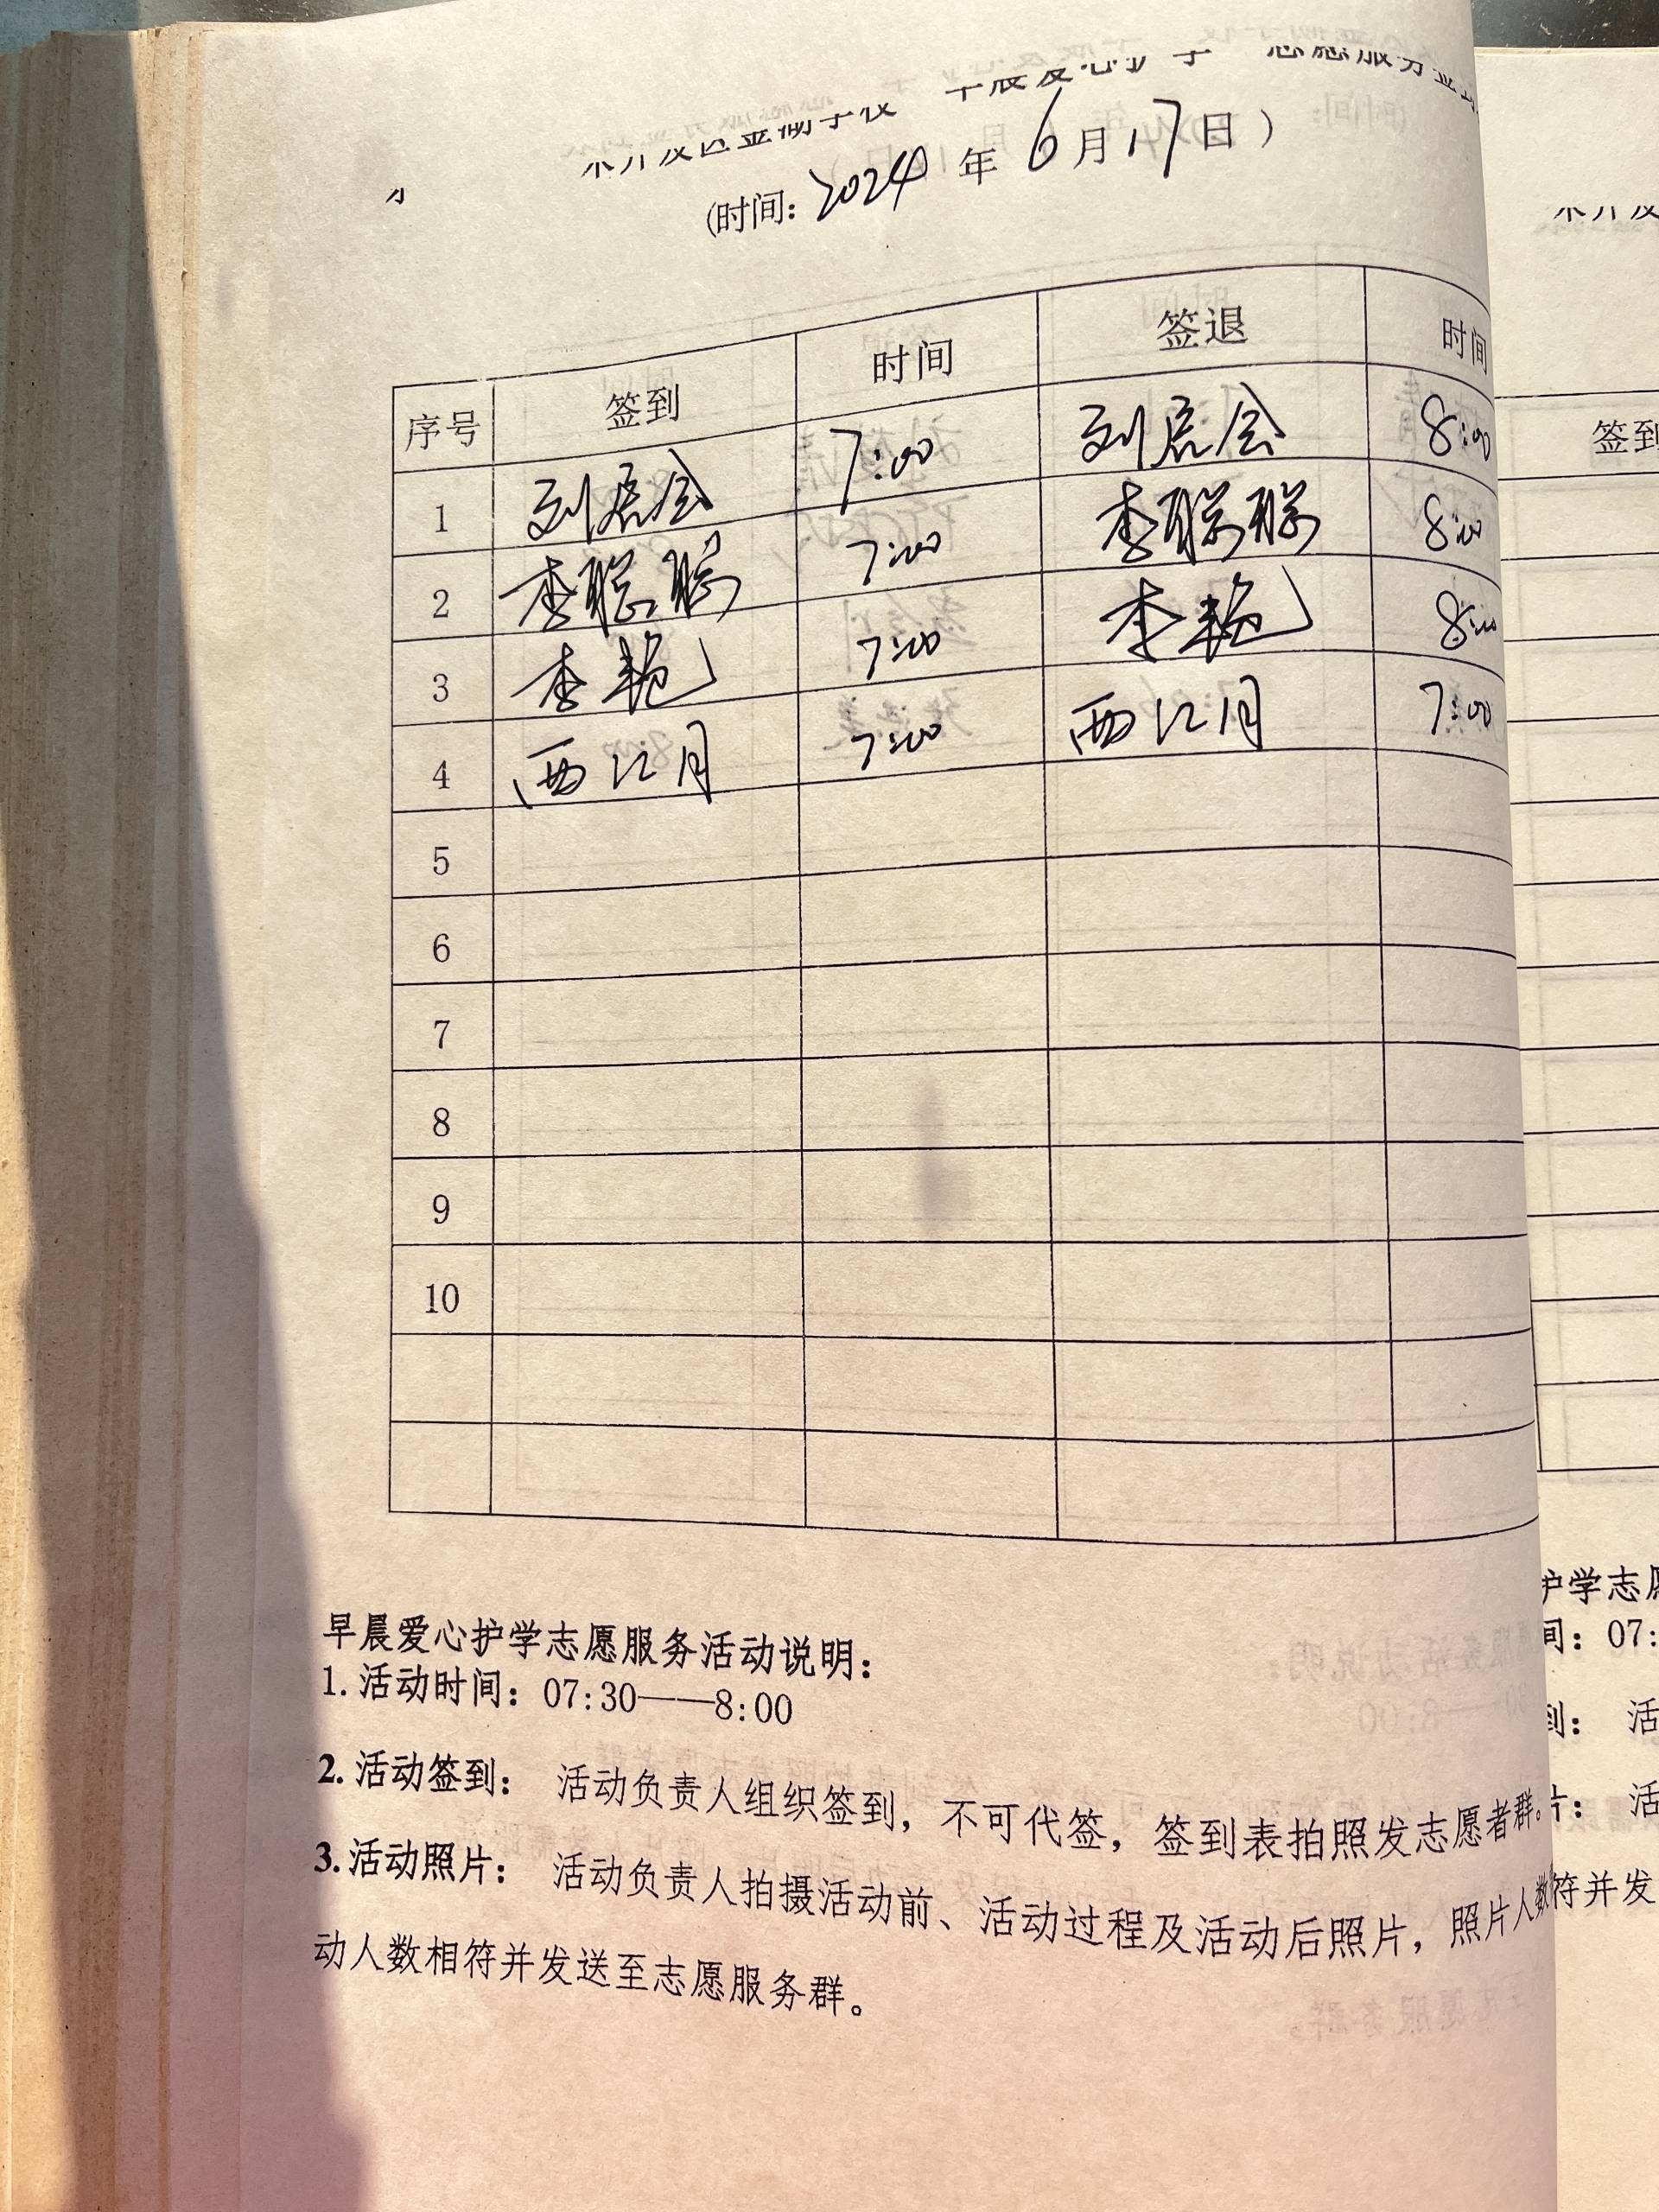 (时间: 2024 年 6 月 17 日 )
序号 签到 时间 签退 时间
1 7:00 8:00
2 李聪聪 7:00 李聪聪 8:00
3 李艳 7:00 李艳 8:00
4 西江月 7:00 西江月 7:00
5
6
7
8
9
10
早晨爱心护学志愿服务活动说明:
1. 活动时间: 07:30——8:00
2. 活动签到: 活动负责人组织签到, 不可代签, 签到表拍照发志愿者群。
3. 活动照片: 活动负责人拍摄活动前、活动过程及活动后照片, 照片人数
动人数相符并发送至志愿服务群。
签到
护学志
间: 07:
到: 活
片: 活
符并发